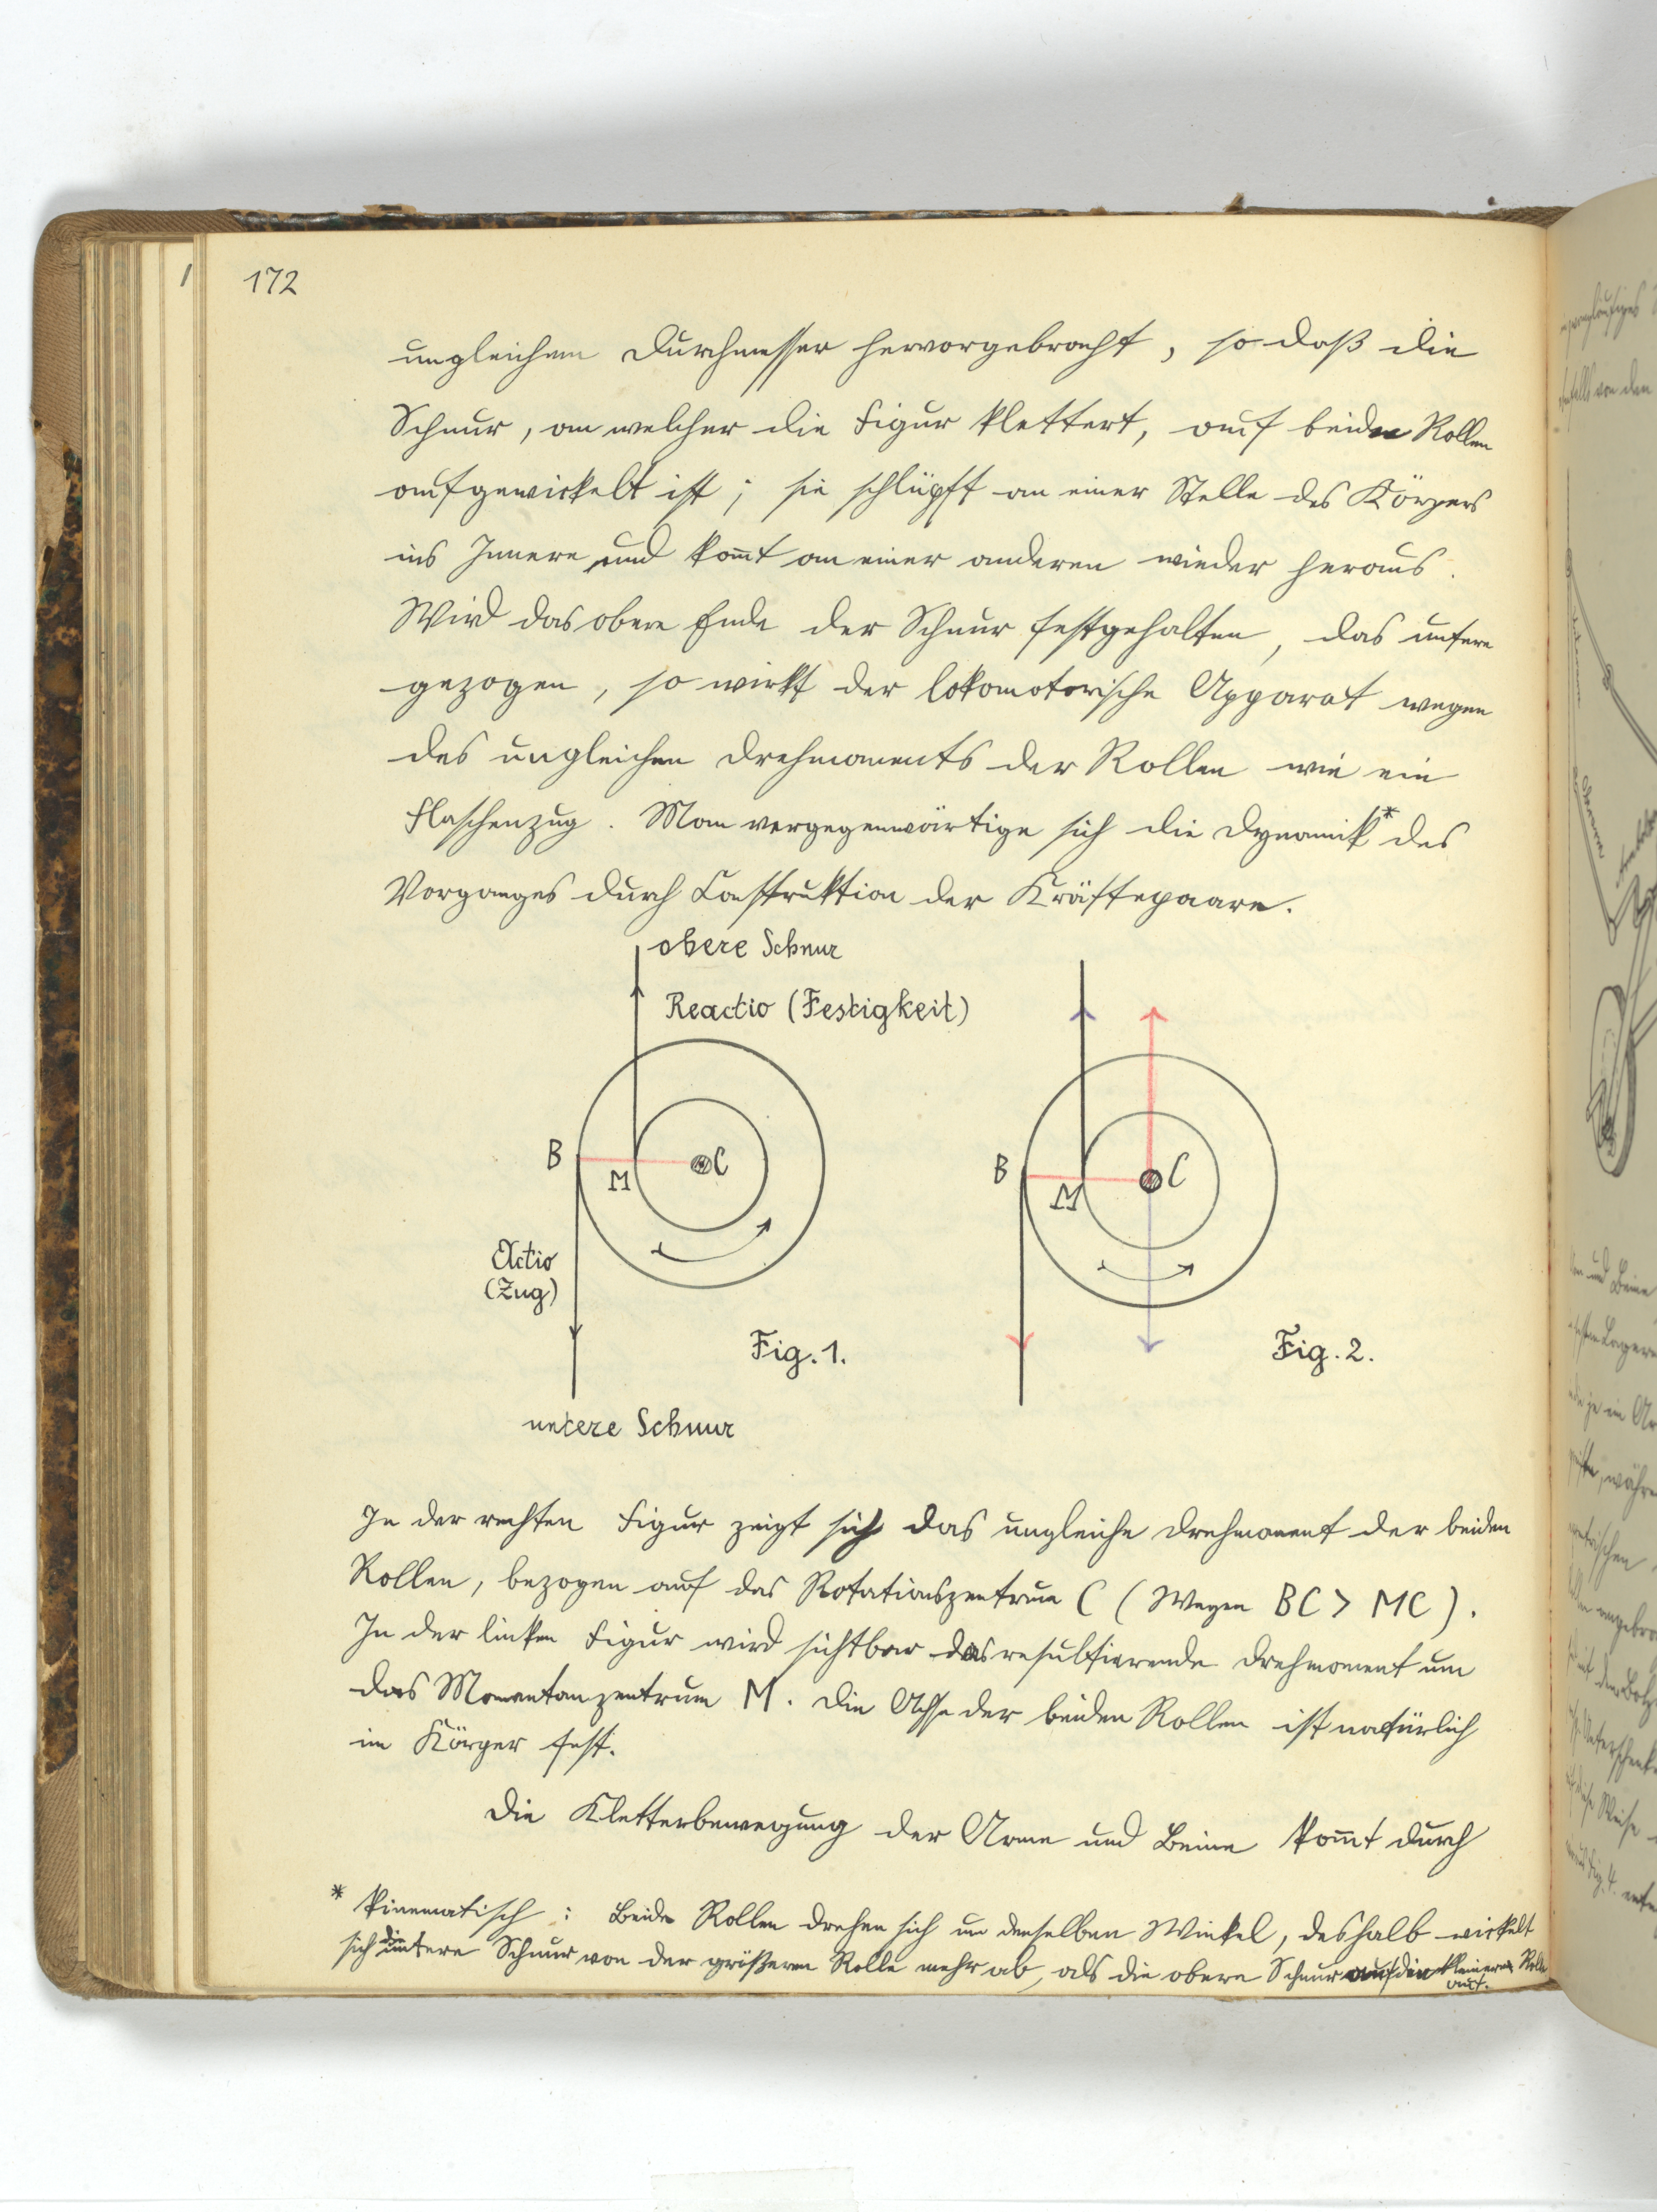 172
ungleichem Durchmesser hervorgebracht, so daß die
Schnur, an welcher die Figur klettert, auf beiden Rollen
aufgewickelt ist; sie schlüpft an einer Stelle des Körpers
ins Innere und kom̄t an einer anderen wieder heraus.
Wird das obere Ende der Schnur festgehalten, das untere
gezogen, so wirkt der lokomotorische Apparat wegen
des ungleichen Drehmoments der Rollen wie ein
Flaschenzug. Man vergegenwärtige sich die Dynamik* des
Vorganges durch Construktion der Kräftepaare.
obere Schnur
Reactio (Festigkeit)
B
M
C
Actio
(Zug)
Fig. 1.
untere Schnur
B
M
C
Fig. 2.
In der rechten Figur zeigt sich das ungleiche Drehmoment der beiden
Rollen, bezogen auf das Rotationszentrum C (Wegen BC > MC).
In der linken Figur wird sichtbar das resultierende Drehmoment um
das Momentanzentrum M. Die Achse der beiden Rollen ist natürlich
im Körper fest.
Die Kletterbewegung der Arme und Beine kom̄t durch
* Kinematisch: Beide Rollen drehen sich um denselben Winkel, deshalb wickelt
sich die untere Schnur von der größeren Rolle mehr ab, als die obere Schnur auf die kleinere Rolle
auf.